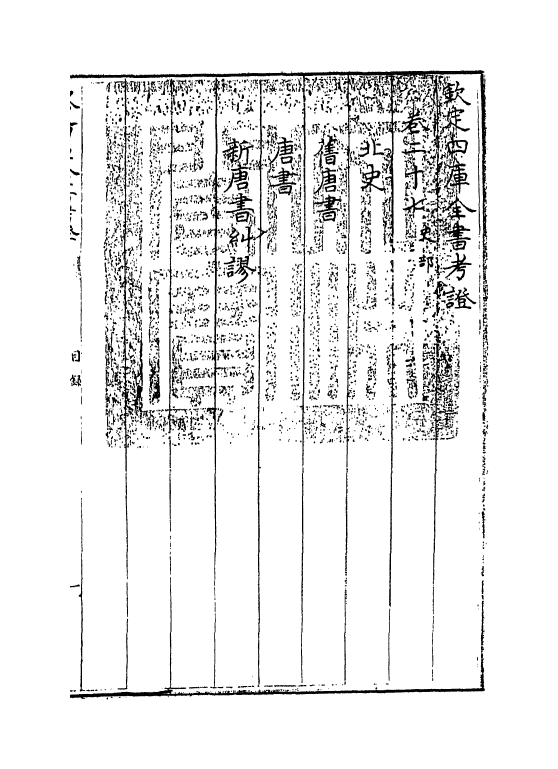 欽定四庫全書考證
卷二十七 史部
北史
舊唐書
唐書
新唐書糾謬
目録
一